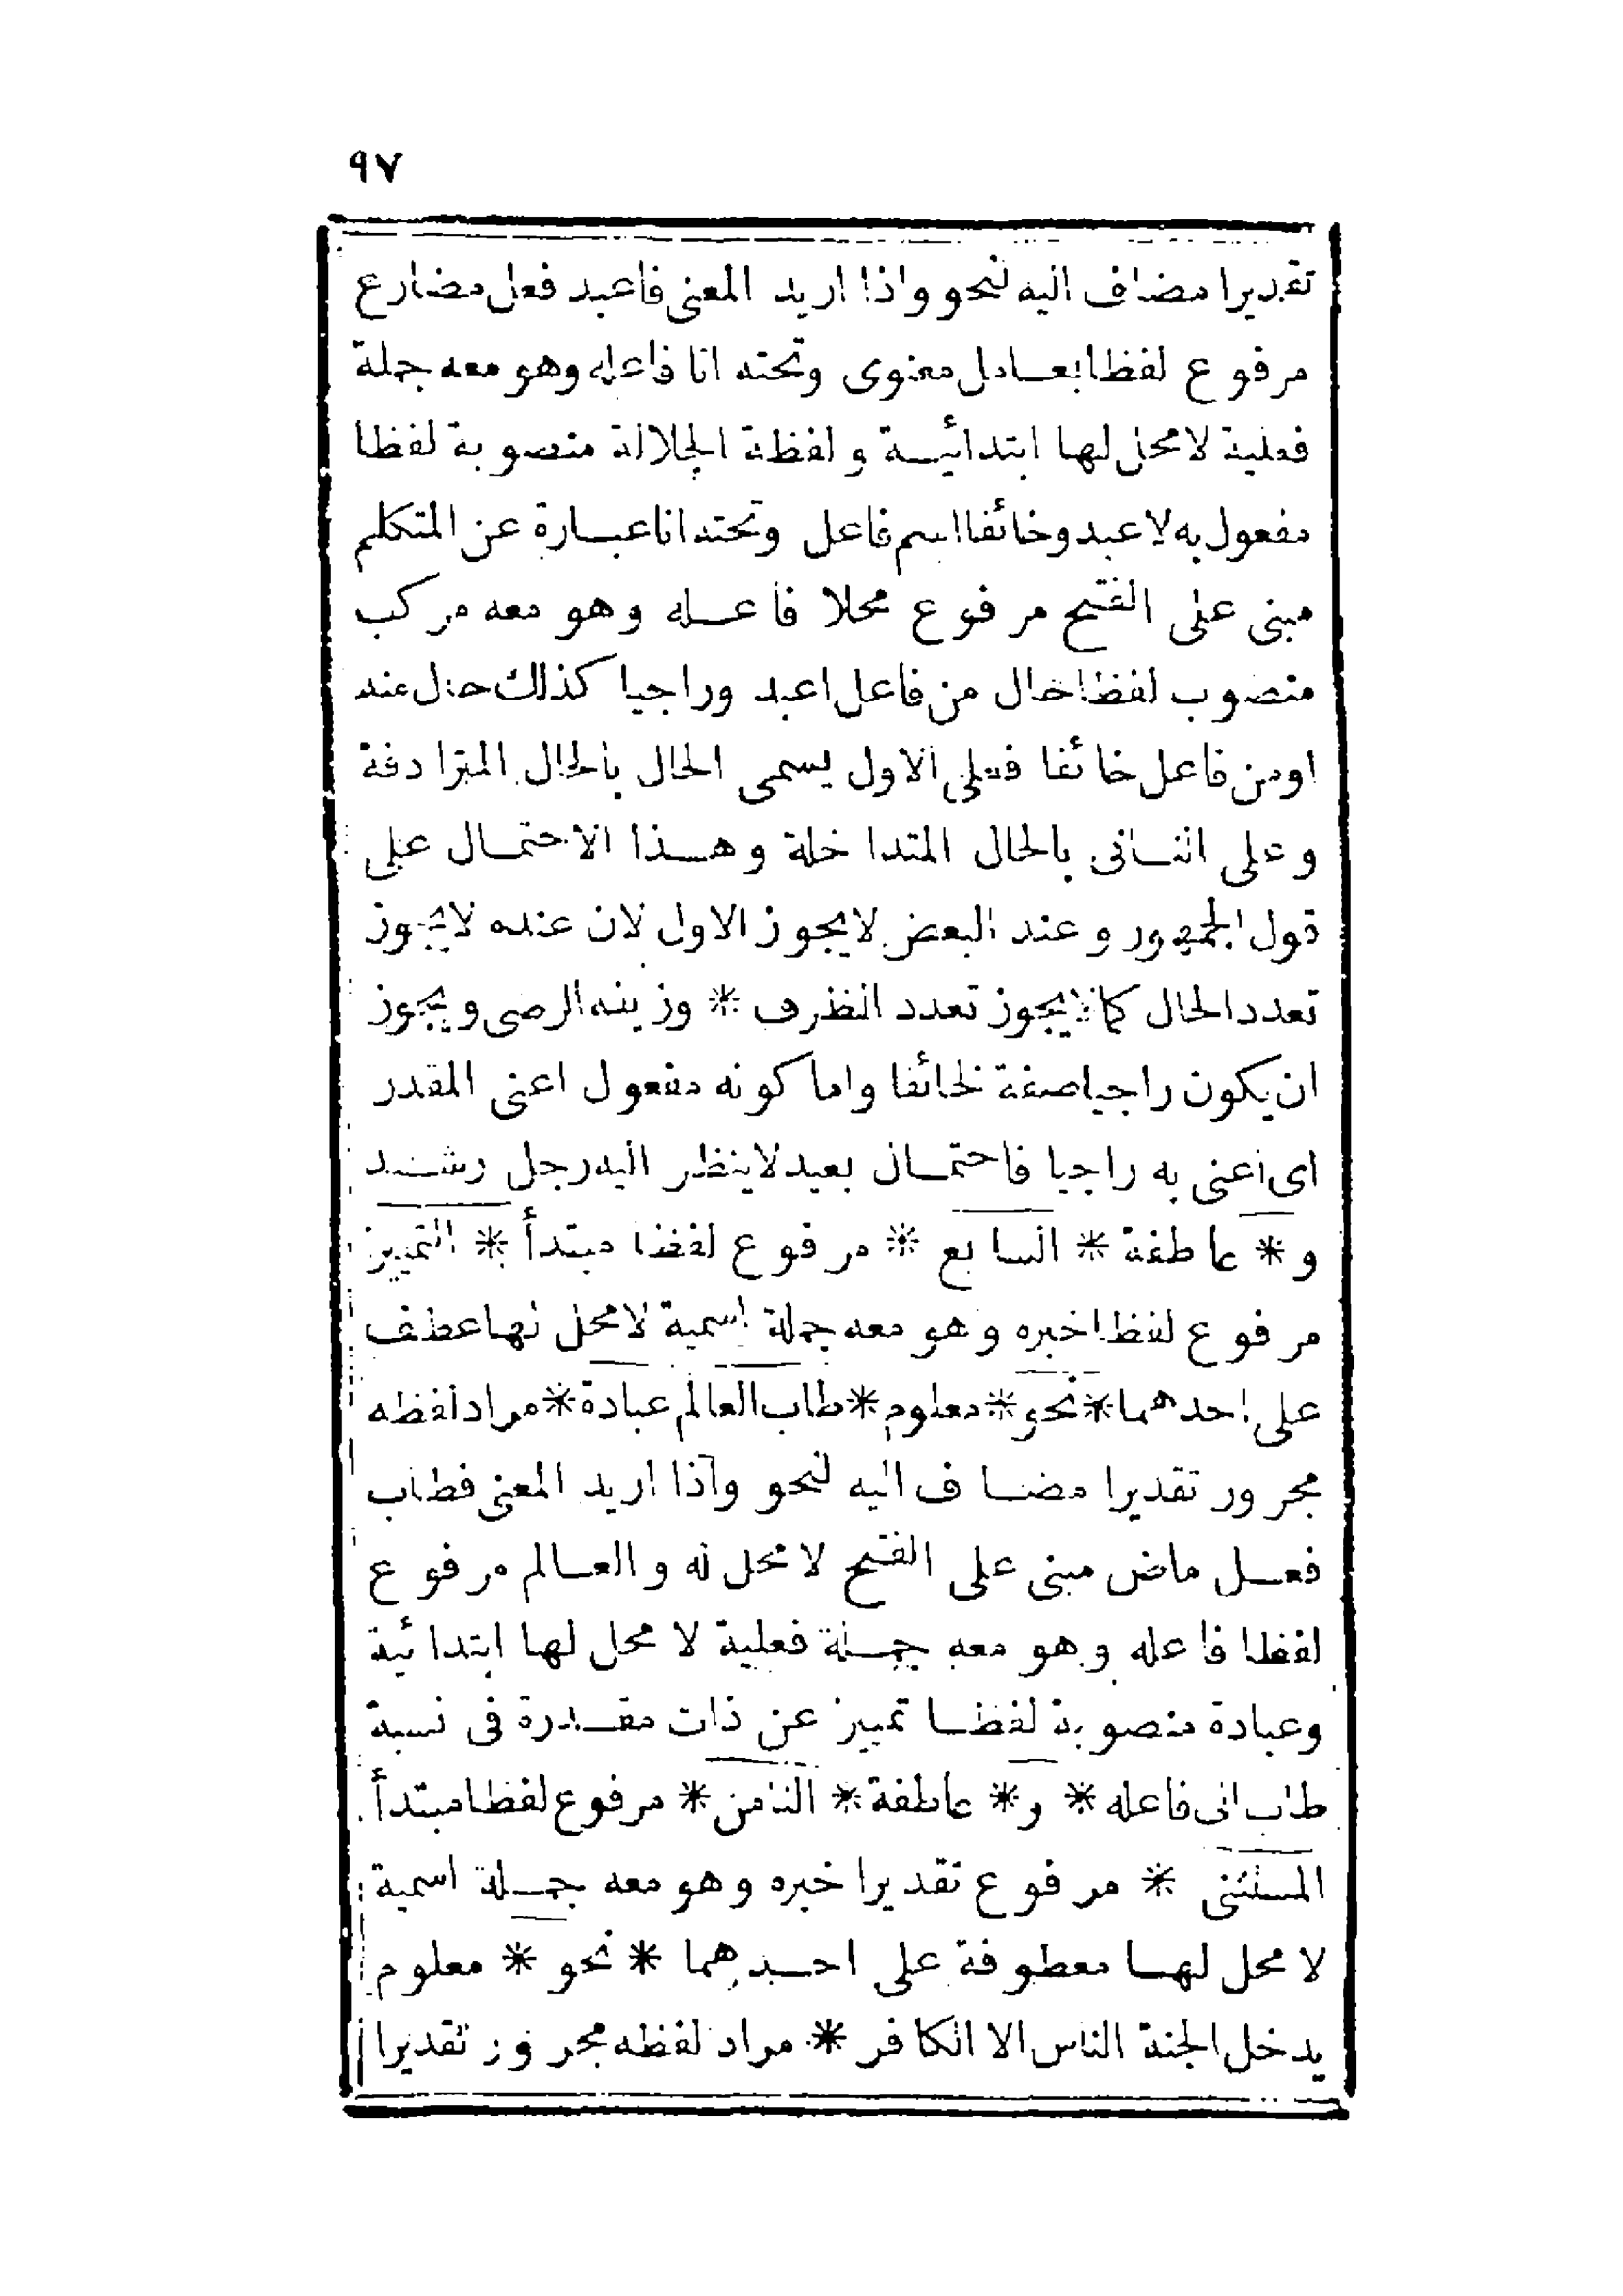 ٩٧
تقديرا مضاف اليه لنحو واذا اريد المعنى فاعبد فعل مضارع
مرفوع لفظا بعامل معنوى وتحته انا فاعله وهو معه جملة
فعلية لا محل لها ابتدائية ولفظة الجلالة منصوبة لفظا
مفعول به لاعبد وخائفا اسم فاعل وتحته انا عبارة عن المتكلم
مبنى على الفتح مرفوع محلا فاعله وهو معه مركب
منصوب لفظا حال من فاعل اعبد وراجيا كذلك حال عنه
اومن فاعل خائفا فعلى الاول يسمى الحال بالحال المترادفة
وعلى الثانى بالحال المتداخلة وهذا الاحتمال على
قول الجمهور وعند البعض لا يجوز الاول لان عنده لا يجوز
تعدد الحال كما لا يجوز تعدد الظرف * وزينه الرضى ويجوز
ان يكون راجيا صفة لخائفا واما كونه مفعول اعنى المقدر
اى اعنى به راجيا فاحتمال بعيد لا ينظر اليه رجل رشيد
و * عاطفة * السابع * مرفوع لفظا مبتدأ * التمييز
مرفوع لفظا خبره وهو معه جملة اسمية لا محل لها عطف
على احدهما * نحو * معلوم * طاب العالم عبادة * مراد لفظه
مجرور تقديرا مضاف اليه لنحو واذا اريد المعنى فطاب
فعل ماض مبنى على الفتح لا محل له والعالم مرفوع
لفظا فاعله وهو معه جملة فعلية لا محل لها ابتدائية
وعبادة منصوبة لفظا تمييز عن ذات مقدرة فى نسبة
طاب الى فاعله * و * عاطفة * الثامن * مرفوع لفظا مبتدأ
المستثنى * مرفوع تقديرا خبره وهو معه جملة اسمية
لا محل لها معطوفة على احدهما * نحو * معلوم
يدخل الجنة الناس الا الكافر * مراد لفظه مجرور تقديرا